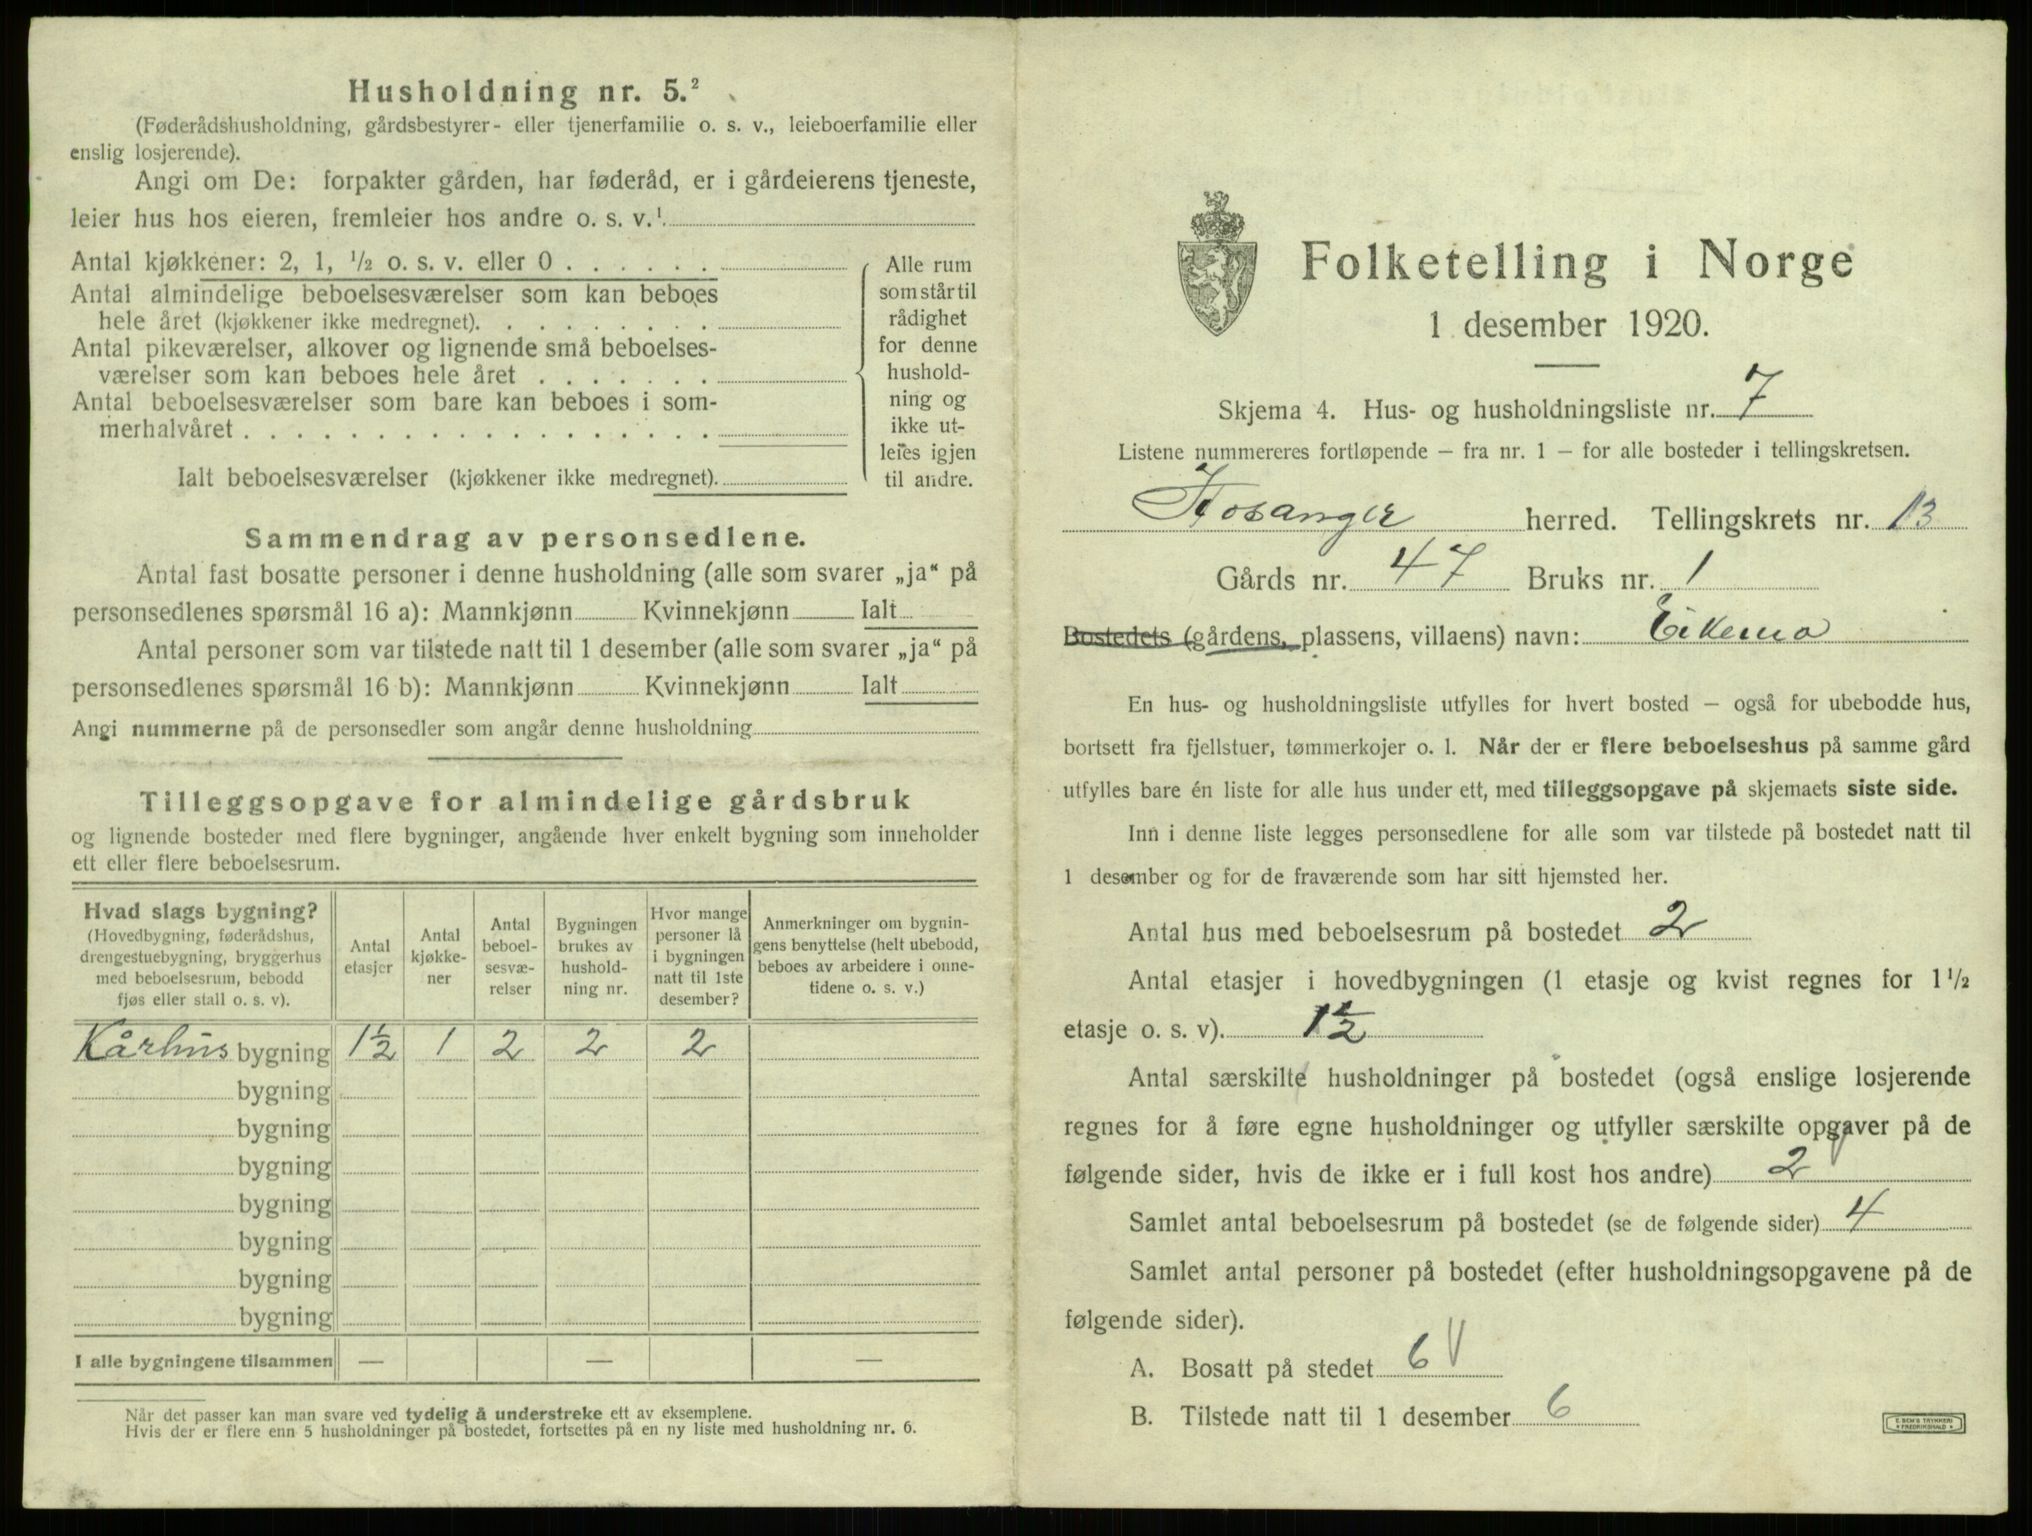 Husholdning nr. 5.²
(Føderådshusholdning, gårdsbestyrer- eller tjenerfamilie o. s. v., leieboerfamilie eller
enslig losjerende).
Angi om De: forpakter gården, har føderåd, er i gårdeierens tjeneste,
leier hus hos eieren, fremleier hos andre o. s. v.¹
Antal kjøkkener: 2, 1, ½ o. s. v. eller 0 . . . . . .
Antal almindelige beboelsesværelser som kan beboes
hele året (kjøkkener ikke medregnet). . . . . . . . .
Antal pikeværelser, alkover og lignende små beboelses-
værelser som kan beboes hele året . . . . . . .
Antal beboelsesværelser som bare kan beboes i som-
merhalvåret . . . . . . . . . . . . . . . . . .
Ialt beboelsesværelser (kjøkkener ikke medregnet).
Alle rum
som står til
rådighet
for denne
hushold-
ning og
ikke ut-
leies igjen
til andre.
Sammendrag av personsedlene.
Antal fast bosatte personer i denne husholdning (alle som svarer „ja“ på
personsedlenes spørsmål 16 a): Mannkjønn Kvinnekjønn Ialt
Antal personer som var tilstede natt til 1 desember (alle som svarer „ja“ på
personsedlenes spørsmål 16 b): Mannkjønn Kvinnekjønn Ialt
Angi nummerne på de personsedler som angår denne husholdning
Tilleggsopgave for almindelige gårdsbruk
og lignende bosteder med flere bygninger, angående hver enkelt bygning som inneholder
ett eller flere beboelsesrum.
Hvad slags bygning?
(Hovedbygning, føderådshus,
drengestuebygning, bryggerhus
med beboelsesrum, bebodd
fjøs eller stall o. s. v).
Antal
etasjer
Antal
kjøkke-
ner
Antal
beboel-
sesvæ-
relser
Bygningen
brukes av
hushold-
ning nr.
Hvor mange
personer lå
i bygningen
natt til 1ste
desember?
Anmerkninger om bygnin-
gens benyttelse (helt ubebodd,
beboes av arbeidere i onne-
tidene o. s. v.)
Kårhus bygning 1½ 1 2 2 2
bygning
bygning
bygning
bygning
bygning
bygning
bygning
I alle bygningene tilsammen — — —
Når det passer kan man svare ved tydelig å understreke ett av eksemplene.
Hvis der er flere enn 5 husholdninger på bostedet, fortsettes på en ny liste med husholdning nr. 6.
Folketelling i Norge
1 desember 1920.
Skjema 4. Hus- og husholdningsliste nr. 7
Listene nummereres fortløpende – fra nr. 1 – for alle bosteder i tellingskretsen.
Hosanger herred. Tellingskrets nr. 13
Gårds nr. 47 Bruks nr. 1
Bostedets (gårdens, plassens, villaens) navn: Eikemo
En hus- og husholdningsliste utfylles for hvert bosted – også for ubebodde hus,
bortsett fra fjellstuer, tømmerkojer o. l. Når der er flere beboelseshus på samme gård
utfylles bare én liste for alle hus under ett, med tilleggsopgave på skjemaets siste side.
Inn i denne liste legges personsedlene for alle som var tilstede på bostedet natt til
1 desember og for de fraværende som har sitt hjemsted her.
Antal hus med beboelsesrum på bostedet 2
Antal etasjer i hovedbygningen (1 etasje og kvist regnes for 1½
etasje o. s. v). 1½
Antal særskilte husholdninger på bostedet (også enslige losjerende
regnes for å føre egne husholdninger og utfyller særskilte opgaver på de
følgende sider, hvis de ikke er i full kost hos andre) 2
Samlet antal beboelsesrum på bostedet (se de følgende sider) 4
Samlet antal personer på bostedet (efter husholdningsopgavene på de
følgende sider).
A. Bosatt på stedet 6
B. Tilstede natt til 1 desember 6
E. SEM'S TRYKKERI
FREDRIKSHALD